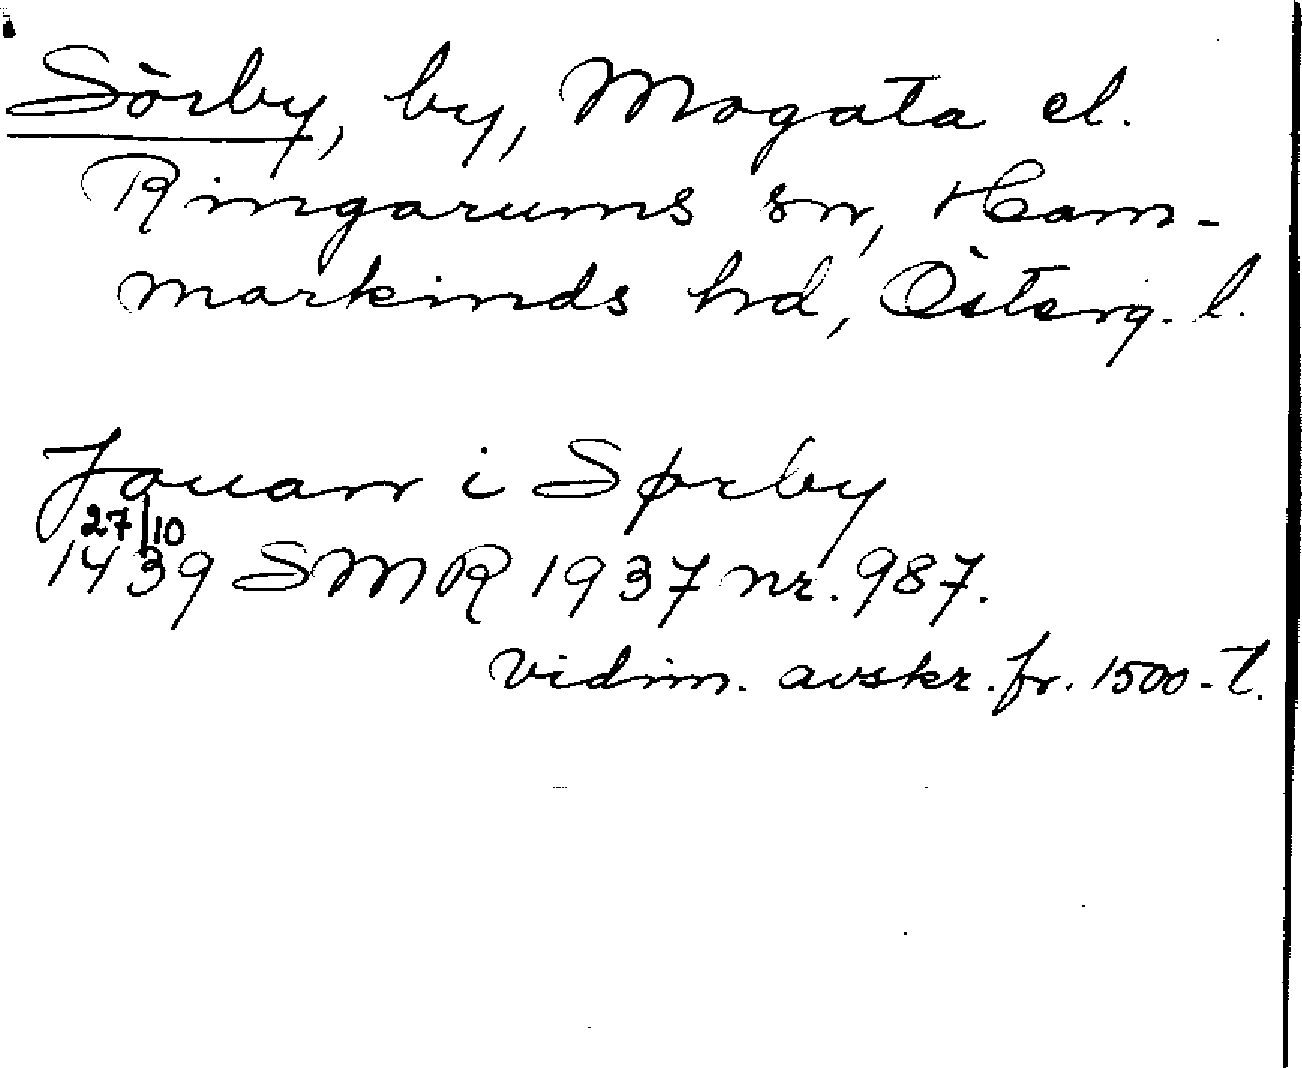 Sörby, by, Mogata el.
Ringarums sn, Ham-
markinds hd, Österg. l.
Jauan i Sørby
27/10
1439 SMR 1937 nr. 987.
vidim. avskr. fr. 1500-t.